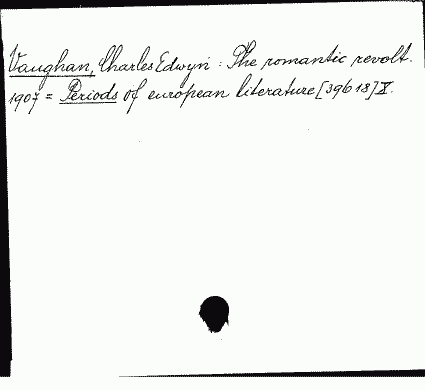 Vaughan, Charles Edwyn : The romantic revolt.
1907 = Periods of european literature [39618] X.